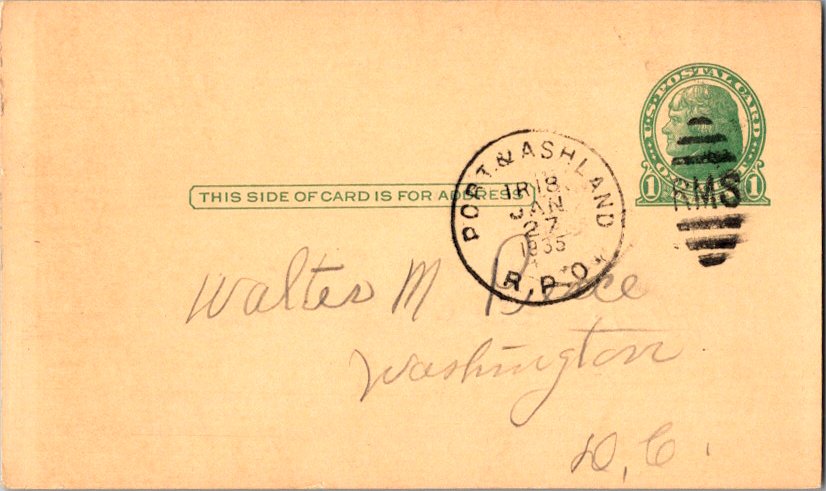 U.S. POSTAL CARD
1 1
THIS SIDE OF CARD IS FOR ADDRESS
PORT. & ASHLAND
TR 18
JAN
27
1935
R.P.O.
RMS
Walter M Pierce
Washington
D.C.